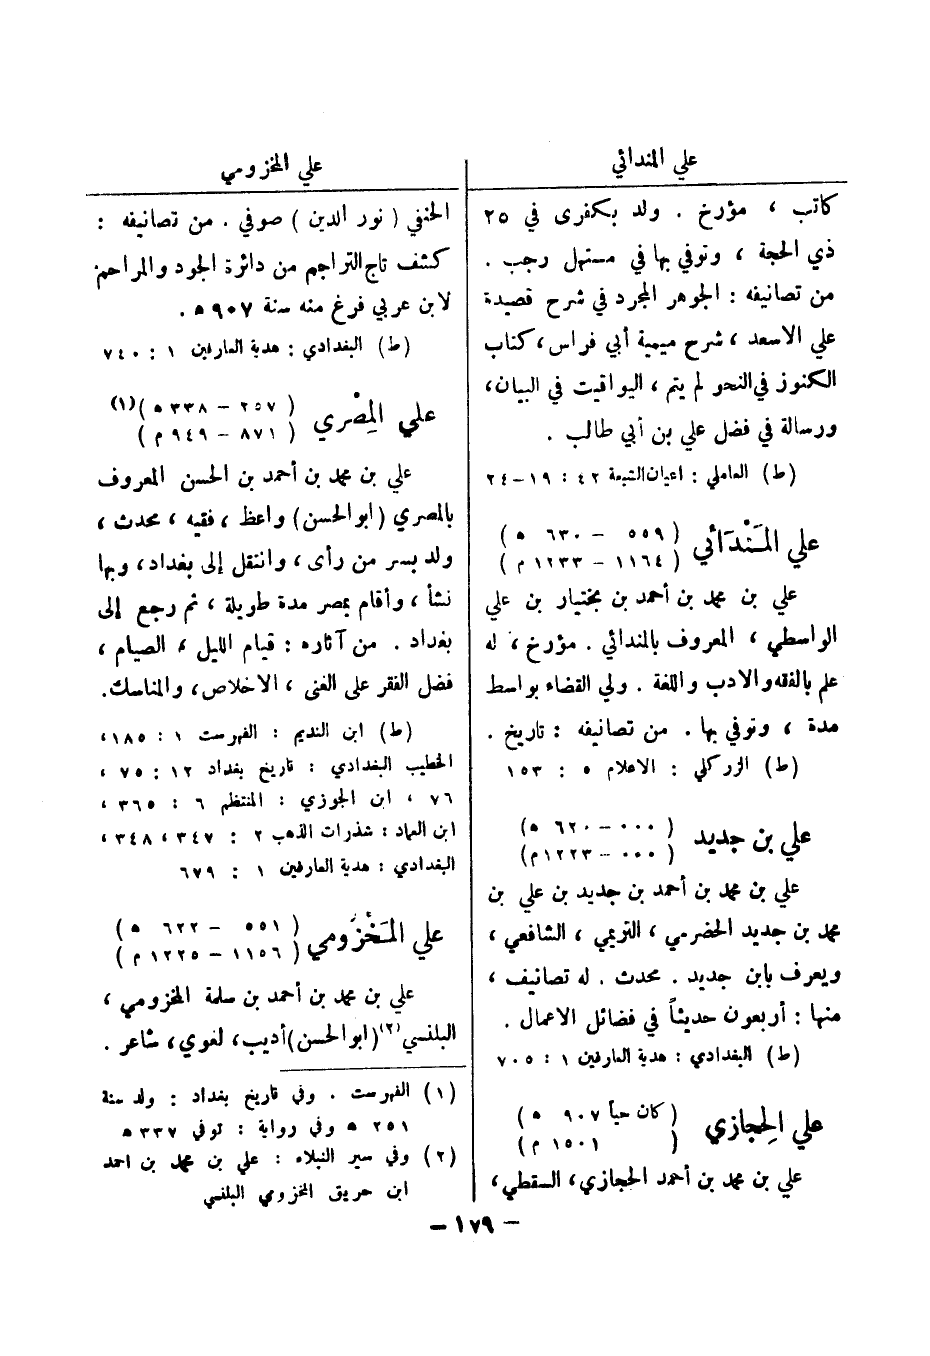 علي المندائي
كاتب ، مؤرخ . ولد بكفرى في ٢٥
ذي الحجة ، وتوفي بها في مستهل رجب .
من تصانيفه : الجوهر المجرد في شرح قصيدة
علي الاسعد ، شرح ميمية أبي فراس ، كتاب
الكنوز في النحو لم يتم ، اليواقيت في البيان ،
ورسالة في فضل علي بن أبي طالب .
(ط) العاملي : اعيان الشيعة ٤٢ : ١٩–٢٤
علي المَنْدَائي ( ٥٥٩ – ٦٣٠ هـ )
( ١١٦٤ – ١٢٣٣ م )
علي بن محمد بن أحمد بن بختيار بن علي
الواسطي ، المعروف بالمندائي . مؤرخ ، له
علم بالفقه والادب واللغة . ولي القضاء بواسط
مدة ، وتوفي بها . من تصانيفه : تاريخ .
(ط) الزركلي : الاعلام ٥ : ١٥٣
علي بن جديد ( ٠٠٠ – ٦٢٠ هـ )
( ٠٠٠ – ١٢٢٣ م )
علي بن محمد بن أحمد بن جديد بن علي بن
محمد بن جديد الحضرمي ، التريمي ، الشافعي ،
ويعرف بابن جديد . محدث . له تصانيف ،
منها : أربعون حديثاً في فضائل الاعمال .
(ط) البغدادي : هدية العارفين ١ : ٧٠٥
علي الحِجازي ( كان حياً ٩٠٧ هـ )
( ١٥٠١ م )
علي بن محمد بن أحمد الحجازي ، السقطي ،
علي المخزومي
الحنفي ( نور الدين ) صوفي . من تصانيفه :
كشف تاج التراجم من دائرة الجود والمراحم
لابن عربي فرغ منه سنة ٩٠٧ هـ .
(ط) البغدادي : هدية العارفين ١ : ٧٤٠
علي المِصْري ( ٢٥٧ – ٣٣٨ هـ )(١)
( ٨٧١ – ٩٤٩ م )
علي بن محمد بن أحمد بن الحسن المعروف
بالمصري (ابو الحسن) واعظ ، فقيه ، محدث ،
ولد بسر من رأى ، وانتقل إلى بغداد ، وبها
نشأ ، وأقام بمصر مدة طويلة ، ثم رجع إلى
بغداد . من آثاره : قيام الليل ، الصيام ،
فضل الفقر على الغنى ، الاخلاص ، والمناسك.
(ط) ابن النديم : الفهرست ١ : ١٨٥ ،
الخطيب البغدادي : تاريخ بغداد ١٢ : ٧٥ ،
٧٦ ، ابن الجوزي : المنتظم ٦ : ٣٦٥ ،
ابن العماد : شذرات الذهب ٢ : ٣٤٧ ، ٣٤٨ ،
البغدادي : هدية العارفين ١ : ٦٧٩
علي المَخْزُومي ( ٥٥١ – ٦٢٢ هـ )
( ١١٥٦ – ١٢٢٥ م )
علي بن محمد بن أحمد بن سلمة المخزومي ،
البلنسي(٢) (ابو الحسن) أديب ، لغوي ، شاعر .
(١) الفهرست . وفي تاريخ بغداد : ولد سنة
٢٥١ هـ وفي رواية : توفي ٣٣٧ هـ
(٢) وفي سير النبلاء : علي بن محمد بن احمد
ابن حريق المخزومي البلنسي
– ١٧٩ –